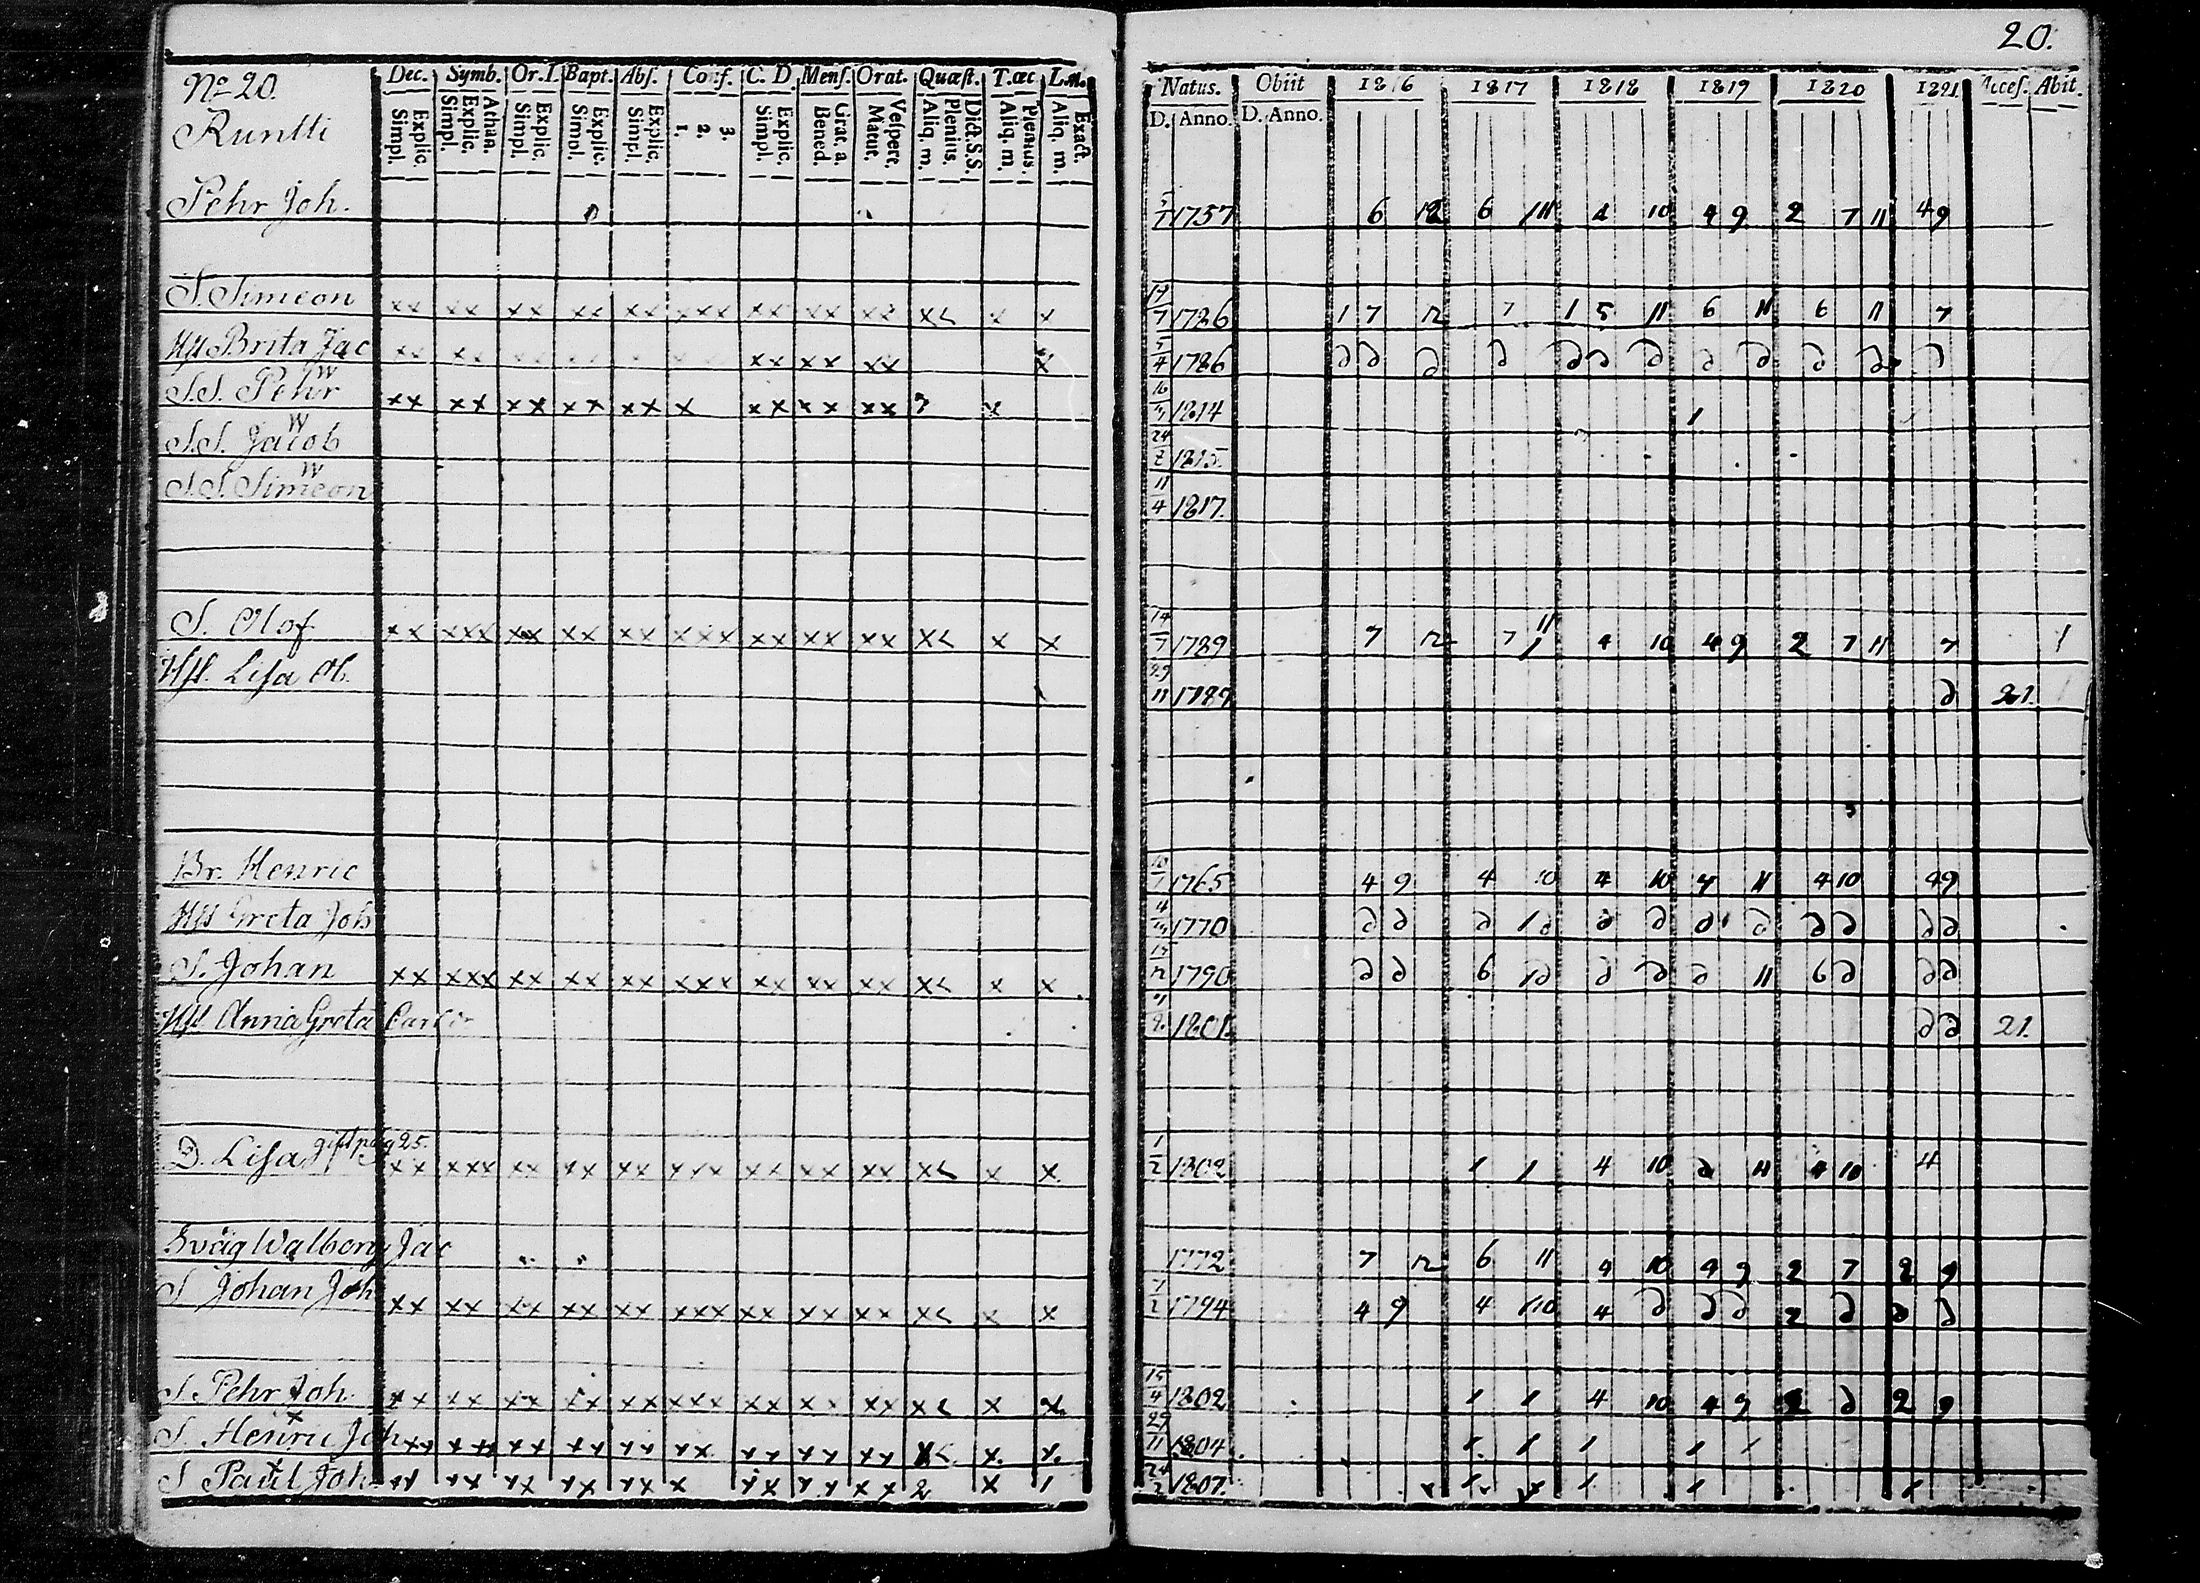 20.
No 20. Dec. Symb. Or. D. Bapt. Abs. Conf. C. D. Mens. Orat. Quæst. T. æc L.m.
Runtti
Explic. Simpl. Athan. Explic. Simpl. Explic. Simpl. Explic. Simpl. Explic. Simpl. 3. 2. 1. Explic. Simpl. Grat. a. Bened. Vespere. Matut. Dict. S.S. Plenius. Aliq. m. Plenius. Aliq. m. Exact. Aliq. m.
Natus. Obiit 1816 1817 1818 1819 1820 1821 Acces. Abit.
D. Anno. D. Anno.
Pehr Joh. 1757 6 12 6 11 4 10 4 9 2 7 11 4 9
S. Simeon xx xx xx xx xx xxx xx xx xx x< x x 19/7 1786 1 7 12 7 1 5 11 6 11 6 11 7
Hu Brita Jac xx xx xx xx xx 5/4 1786 ∂ ∂ ∂ ∂ ∂ ∂ ∂ ∂ ∂ ∂ ∂ ∂
S.S. Pehr xx xx xx xx xx x xx xx xx x 1814 1
S.S. Jacob 24/2 1815.
S.S. Simeon 11/4 1817.
S. Olof xx xxx xx xx xx xxx xx xx xx x< x x 14/7 1789 7 12 7 11 1 4 10 4 9 2 7 11 7 1
Hu. Lisa Ol. 29/11 1787 ∂ 21.
Br. Henric 1765 4 9 4 10 4 10 4 11 4 10 4 9
Hu Greta Joh 1770 ∂ ∂ ∂ 1 ∂ ∂ ∂ ∂ ∂ ∂ ∂ ∂ ∂
S. Johan xx xxx xx xx xx xxx xx xx xx x< x x 1790 ∂ ∂ 6 1∂ ∂ ∂ ∂ 11 6 ∂ ∂ ∂
Hu Anna Greta Carls 1801. ∂ ∂ 21.
gift pag 25.
D. Lisa xx xxx xx xx xx xxx xx xx xx x< x x 1/2 1802 1 1 4 10 ∂ 11 4 10 4
Sväg Walborg Jac 1772 7 12 6 11 4 10 4 9 2 7 2 9
S Johan Joh xx xx xx xx xx xxx xx xx xx x< x x 7/2 1794 4 9 4 1 10 4 ∂ ∂ ∂ 2 ∂ ∂ ∂
S. Pehr Joh. xx xx xx xx xx xxx xx xx xx x< x x 15/4 1802 1 1 4 10 4 9 2 ∂ 2 9
S. Henric Joh xx xx xx xx xx xx xx xx xx x< x. x. 29/11 1804. 1 1 1 1 1
S Paul Joh xx xx xx xx xx x xx xx xx 2 x 1 1807. 1 1 1 1